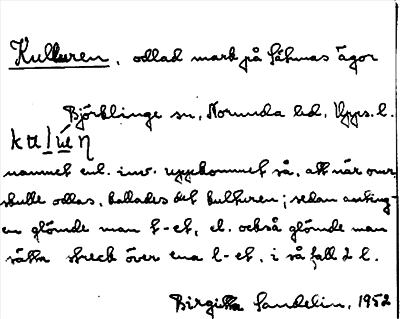 Kulluren, odlad mark på Såknas ägor
Björklinge sn, Norunda hd, Upps. l.
namnet enl. inv. uppkommet så, att när omr.
skulle odlas, kallades det kulturen; sedan anting-
en glömde man t-et, el. också glömde man
sätta streck över ena l-et, i så fall 2 l.
Birgitta Sandelin, 1952